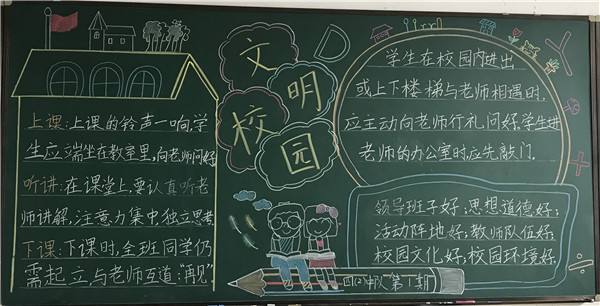 文明
校园
上课:上课的铃声一响,学
生应端坐在教室里,向老师问好
听讲:在课堂上,要认真听老
师讲解,注意力集中,独立思考
下课:下课时,全班同学仍
需起立,与老师互道:“再见”
学生在校园内进出
或上下楼梯与老师相遇时,
应主动向老师行礼、问好,学生进
老师的办公室时,应先敲门.
领导班子好;思想道德好;
活动阵地好;教师队伍好;
校园文化好;校园环境好,
四(2)中队 第1期